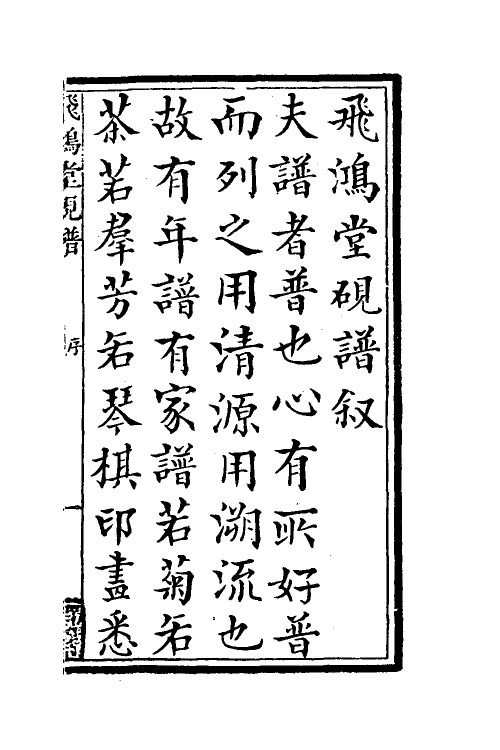 飛鴻堂硯譜叙
夫譜者普也心有所好普
而列之用清源用溯流也
故有年譜有家譜若菊若
茶若羣芳若琴棋印畫悉
飛鴻堂硯譜
序
一